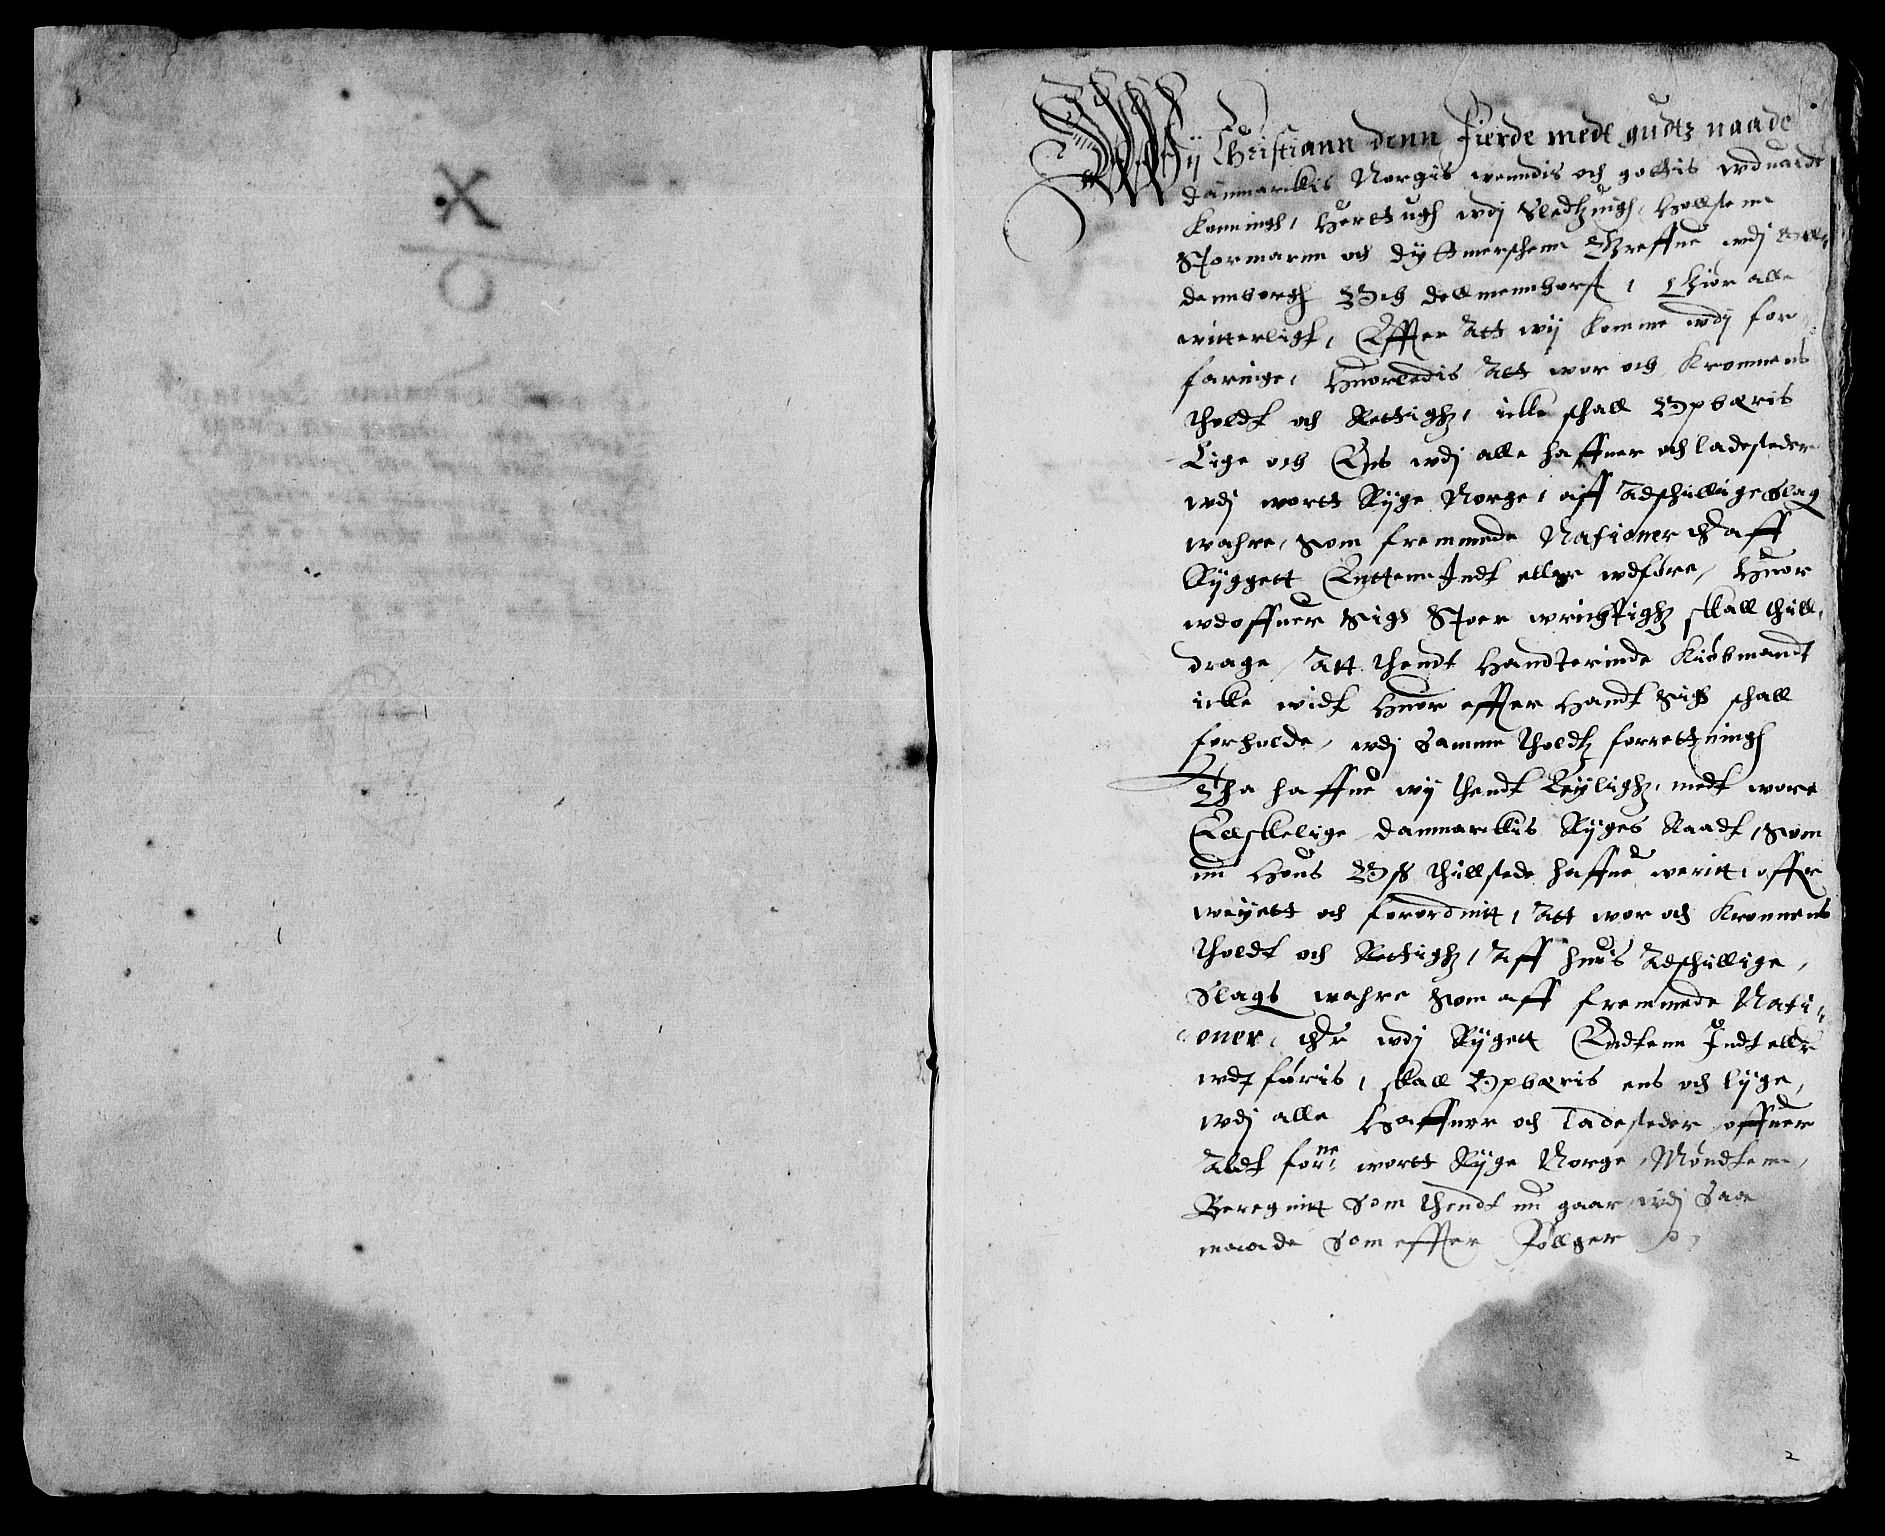 Wij Christiann denn Fierde medt gudtz naade
Danmarckis Norgis wenndis och gottis wduaaldt
Konningh, Herttugh wdj Sledtzuigh, Hollstenn
Stormarnn och Dyttmerschenn Greffue wdj Oll,
dennborgh Och Dellmennhorst, Giør alle
witterligt, Effter Att wij komme wdj for
faringe, Huorledis Att wor och Kronnens
Tholdt och Rettighz, icke schall Opbæris
Lige och Ens wdj alle haffner och ladesteder
wdj wortt Ryge Norge, aff Adschillige Slag
wahre, som fremmede Nationer ther aff
Ryggett Enttenn Indt eller wdføre, Huor
wdoffuer sigh Stoer wrichtighz skall thill,
drage, Att thendt Handterinde Kiøbmandt
icke widt huor effter handt sigh schall
forholde, wdj samme tholdtz forrettningh
Tha haffue wij thendt Leylighz, medt wore
Elskelige Danmarckis Ryges Raadt, som
nu Hous Oss thillstede haffue weritt, offuer
weyett och forordnitt, Att wor och Kronnens
Tholdt och Rettighz, Aff huis Adschillige,
Slags wahre som aff fremmede Nati,
oner, ther wdj Rygett Endtenn Indt eller
wdtføris, skall Opbæris ens och lyge,
wdj alle Haffner och Ladesteder offuer
Aldt forne wortt Ryge Norge, Møndtenn,
Beregnitt som thendt nu gaar wdj saa
maade som effter Føllger
2